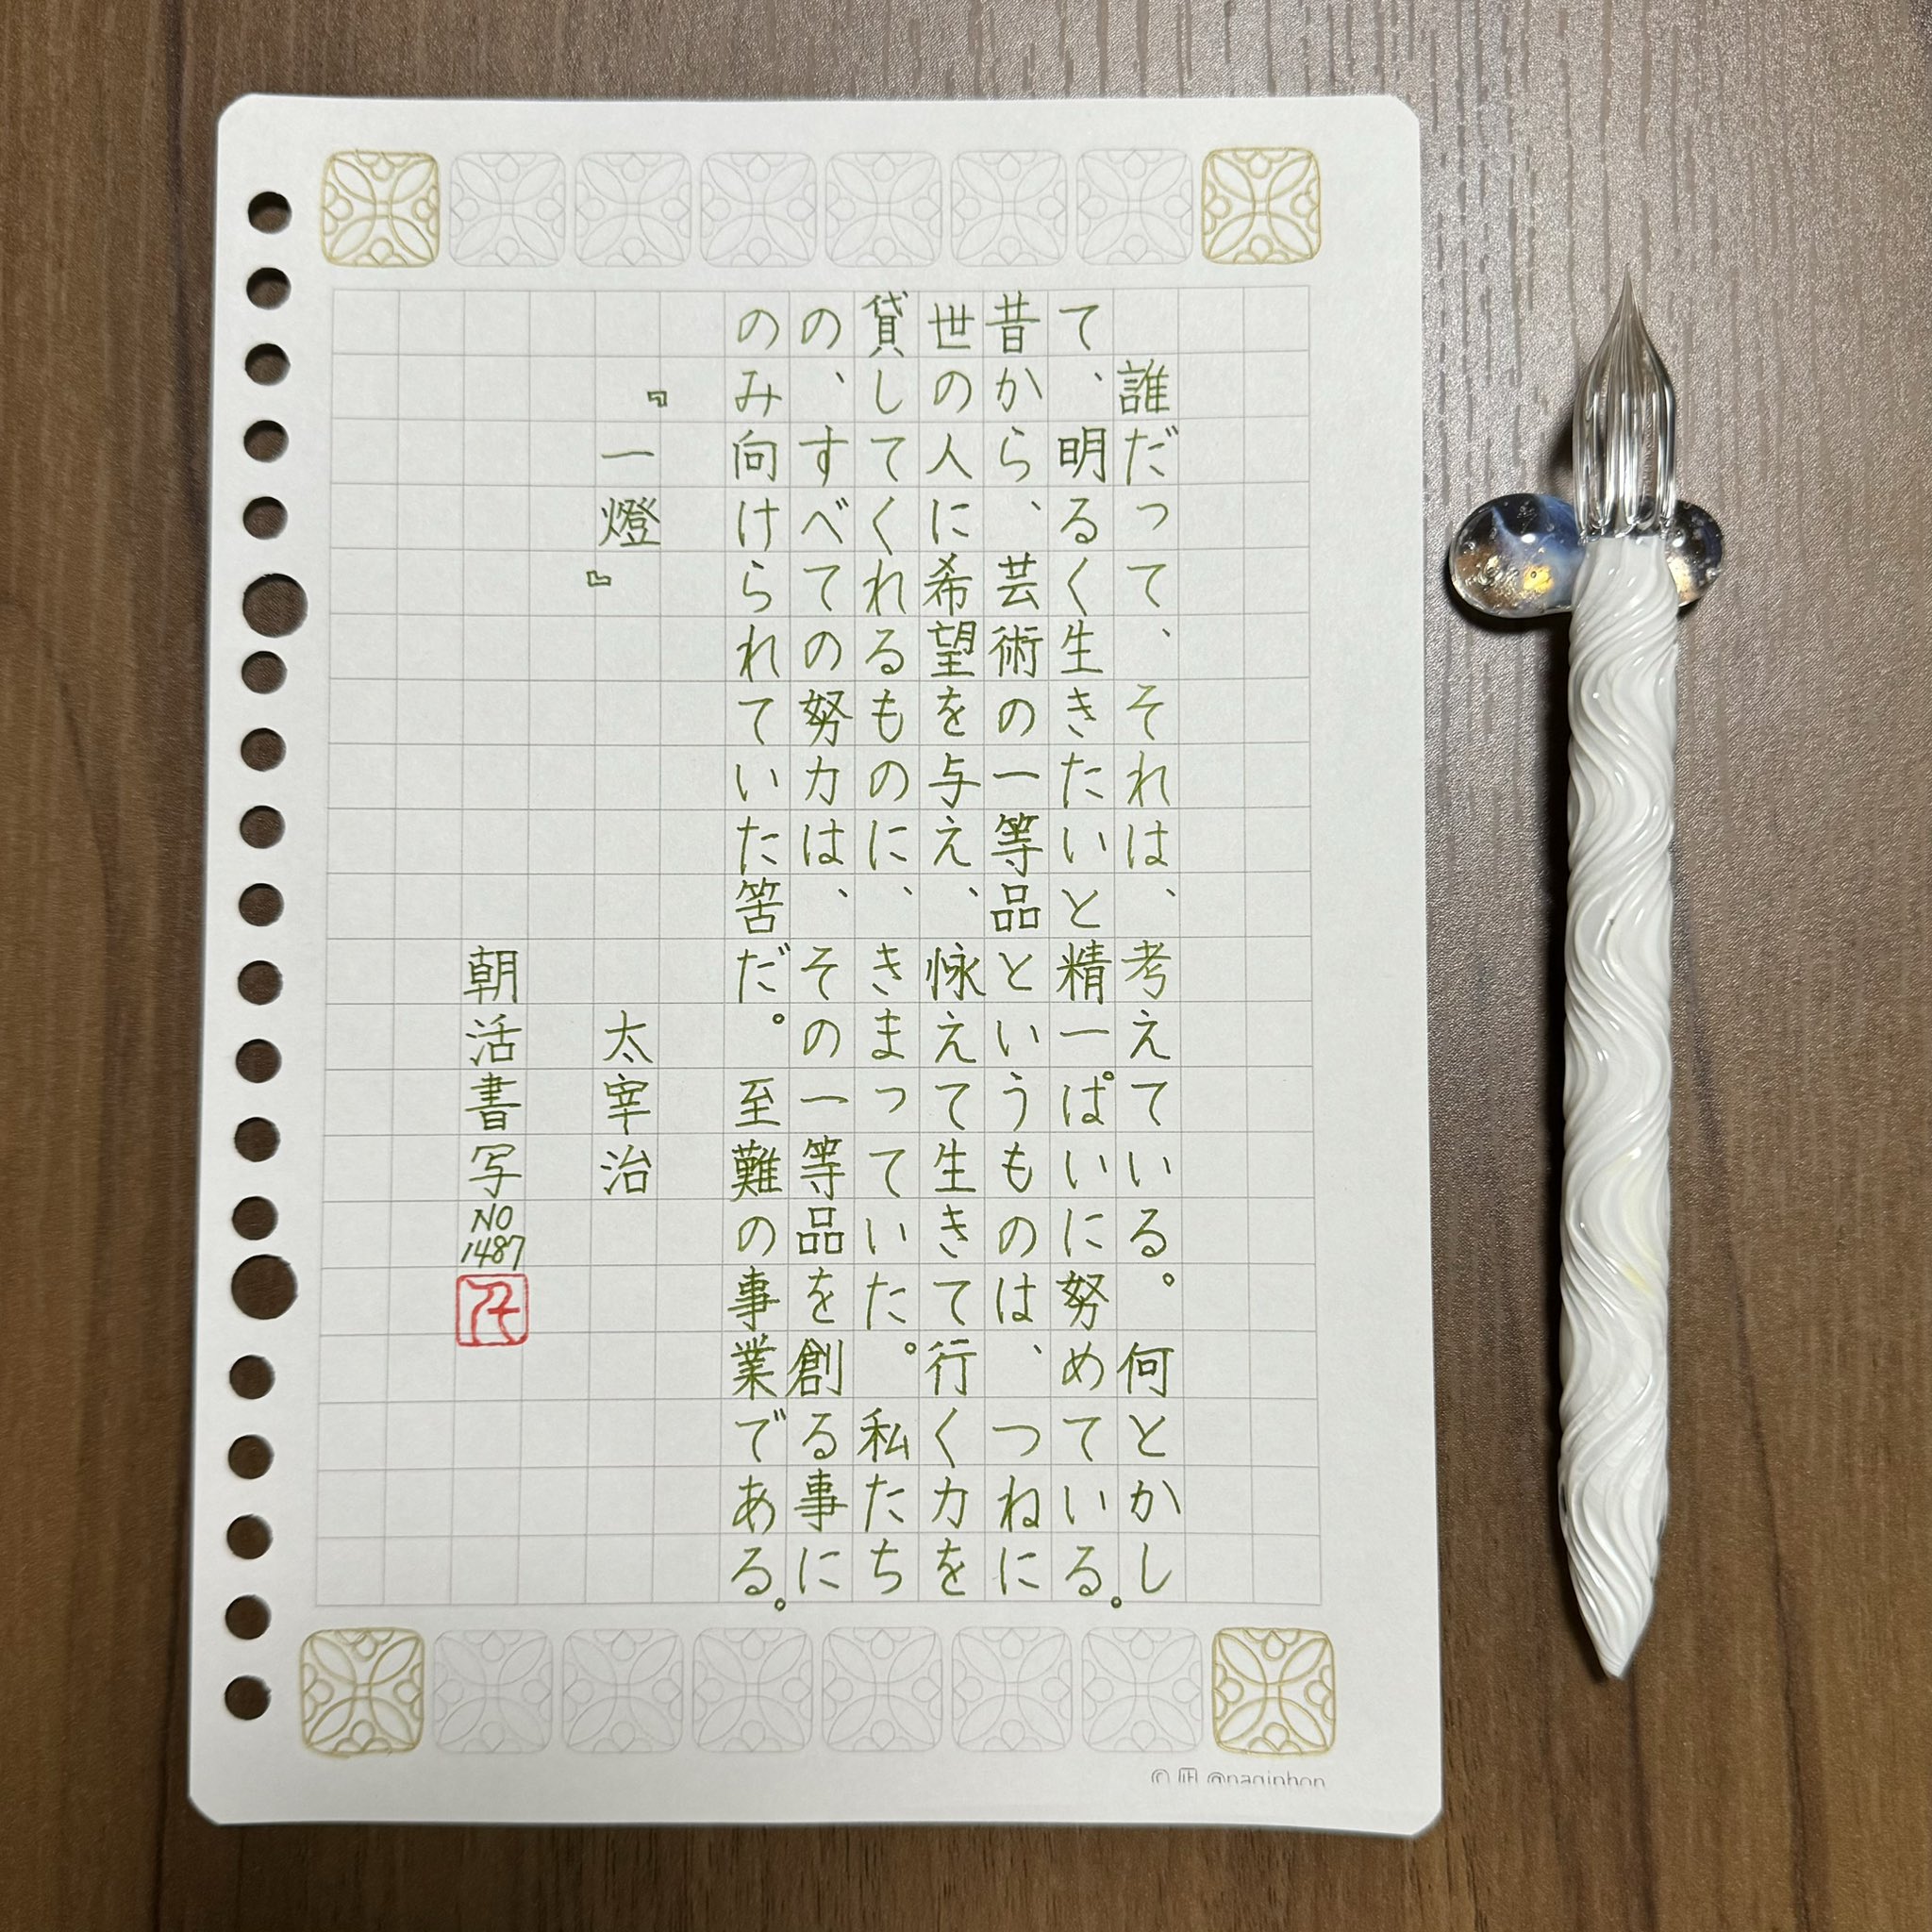 誰だって、それは、考えている。何とかし
て、明るく生きたいと精一ぱいに努めている。
昔から、芸術の一等品というものは、つねに
世の人に希望を与え、怺えて生きて行く力を
貸してくれるものに、きまっていた。私たち
の、すべての努力は、その一等品を創る事に
のみ向けられていた筈だ。至難の事業である。
『一燈』 太宰治
朝活書写 NO 1487
© 凪 @naginbon